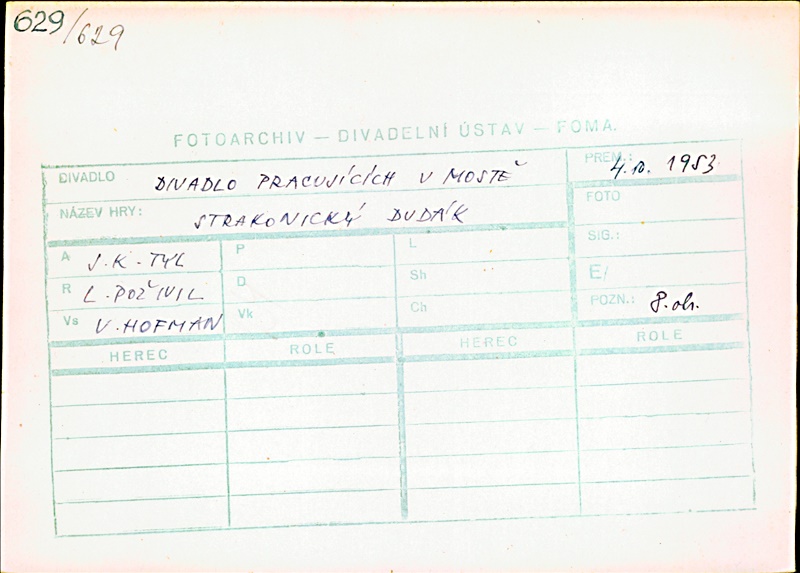 629/629
FOTOARCHIV — DIVADELNÍ ÚSTAV — FOMA.
DIVADLO DIVADLO PRACUJÍCÍCH V MOSTĚ
PREM.: 4. 10. 1953
NÁZEV HRY: STRAKONICKÝ DUDÁK
FOTO
A J. K. TYL P L SIG.:
R L. POŽIVIL D Sh E/
Vs V. HOFMAN Vk Ch POZN.: 8. ob.
HEREC ROLE HEREC ROLE